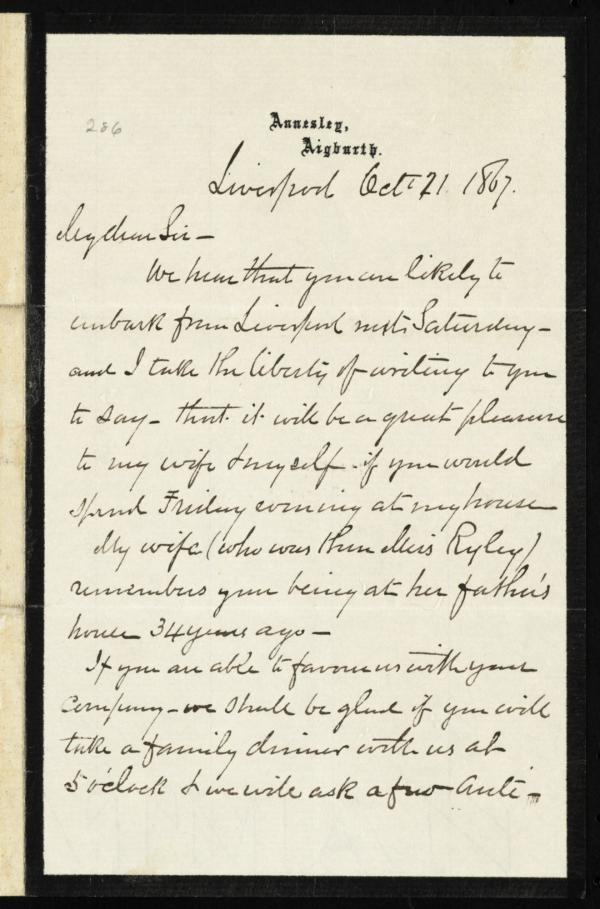 286
Annesley,
Aigburth.
Liverpool Oct 21. 1867.
My dear Sir—
We hear that you are likely to
embark from Liverpool next Saturday—
and I take the liberty of writing to you
to say— that it will be a great pleasure
to my wife & myself if you would
spend Friday evening at my house
My wife (who was then Miss Ryley)
remembers your being at her father's
house 34 years ago—
If you are able to favour us with your
company—we shall be glad if you will
take a family dinner with us at
5 o'clock & we will ask a few Anti-